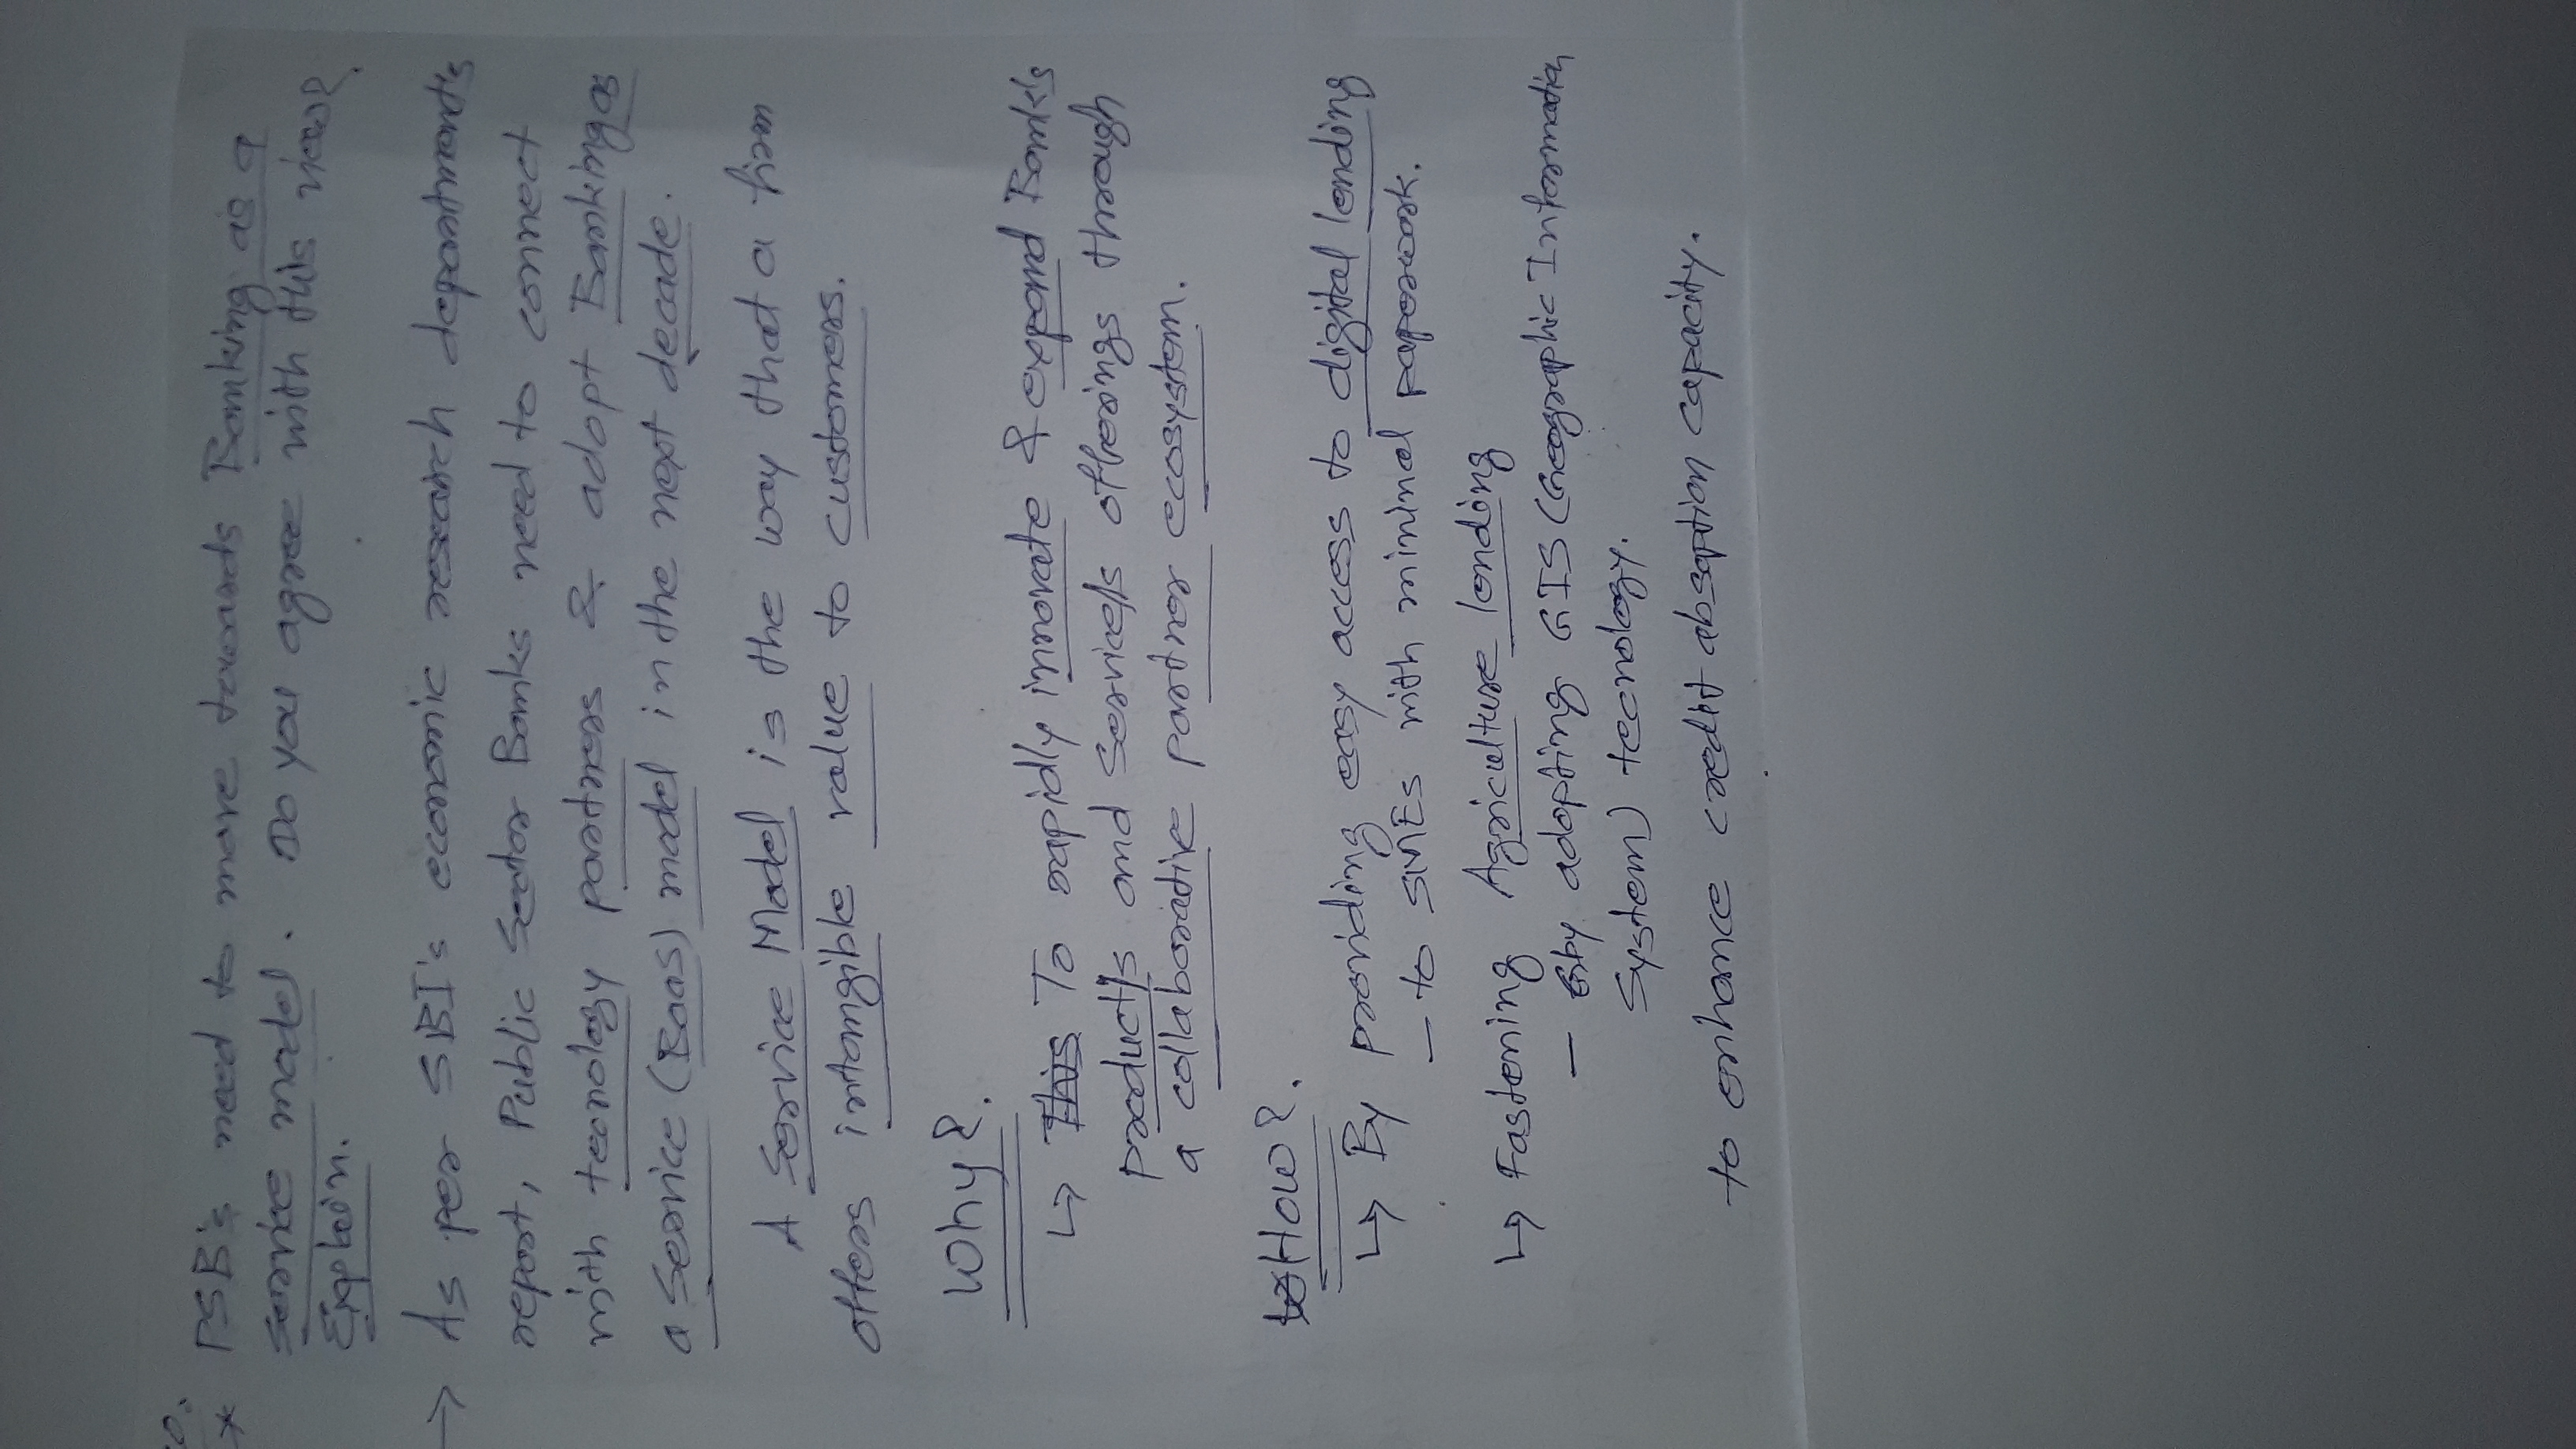 * PSB's need to move towards Banking as a
service model. Do you agree with this view?
Explain.
→ As per SBI's economic research department's
report, Public Sector Banks need to connect
with tecnology partners & adopt Banking as
a Service (Baas) model in the next decade.
A Service Model is the way that a firm
offers intangible value to customers.
Why?
↳ This To rapidly innovate & expand Bank's
products and services offerings through
a collaborative partner ecosystem.
How?
↳ By providing easy access to digital lending
– to SMEs with minimal paperwork.
↳ Fastening Agriculture lending
– by adopting GIS (Geographic Information
System) tecnology.
to enhance credit absoption capacity.